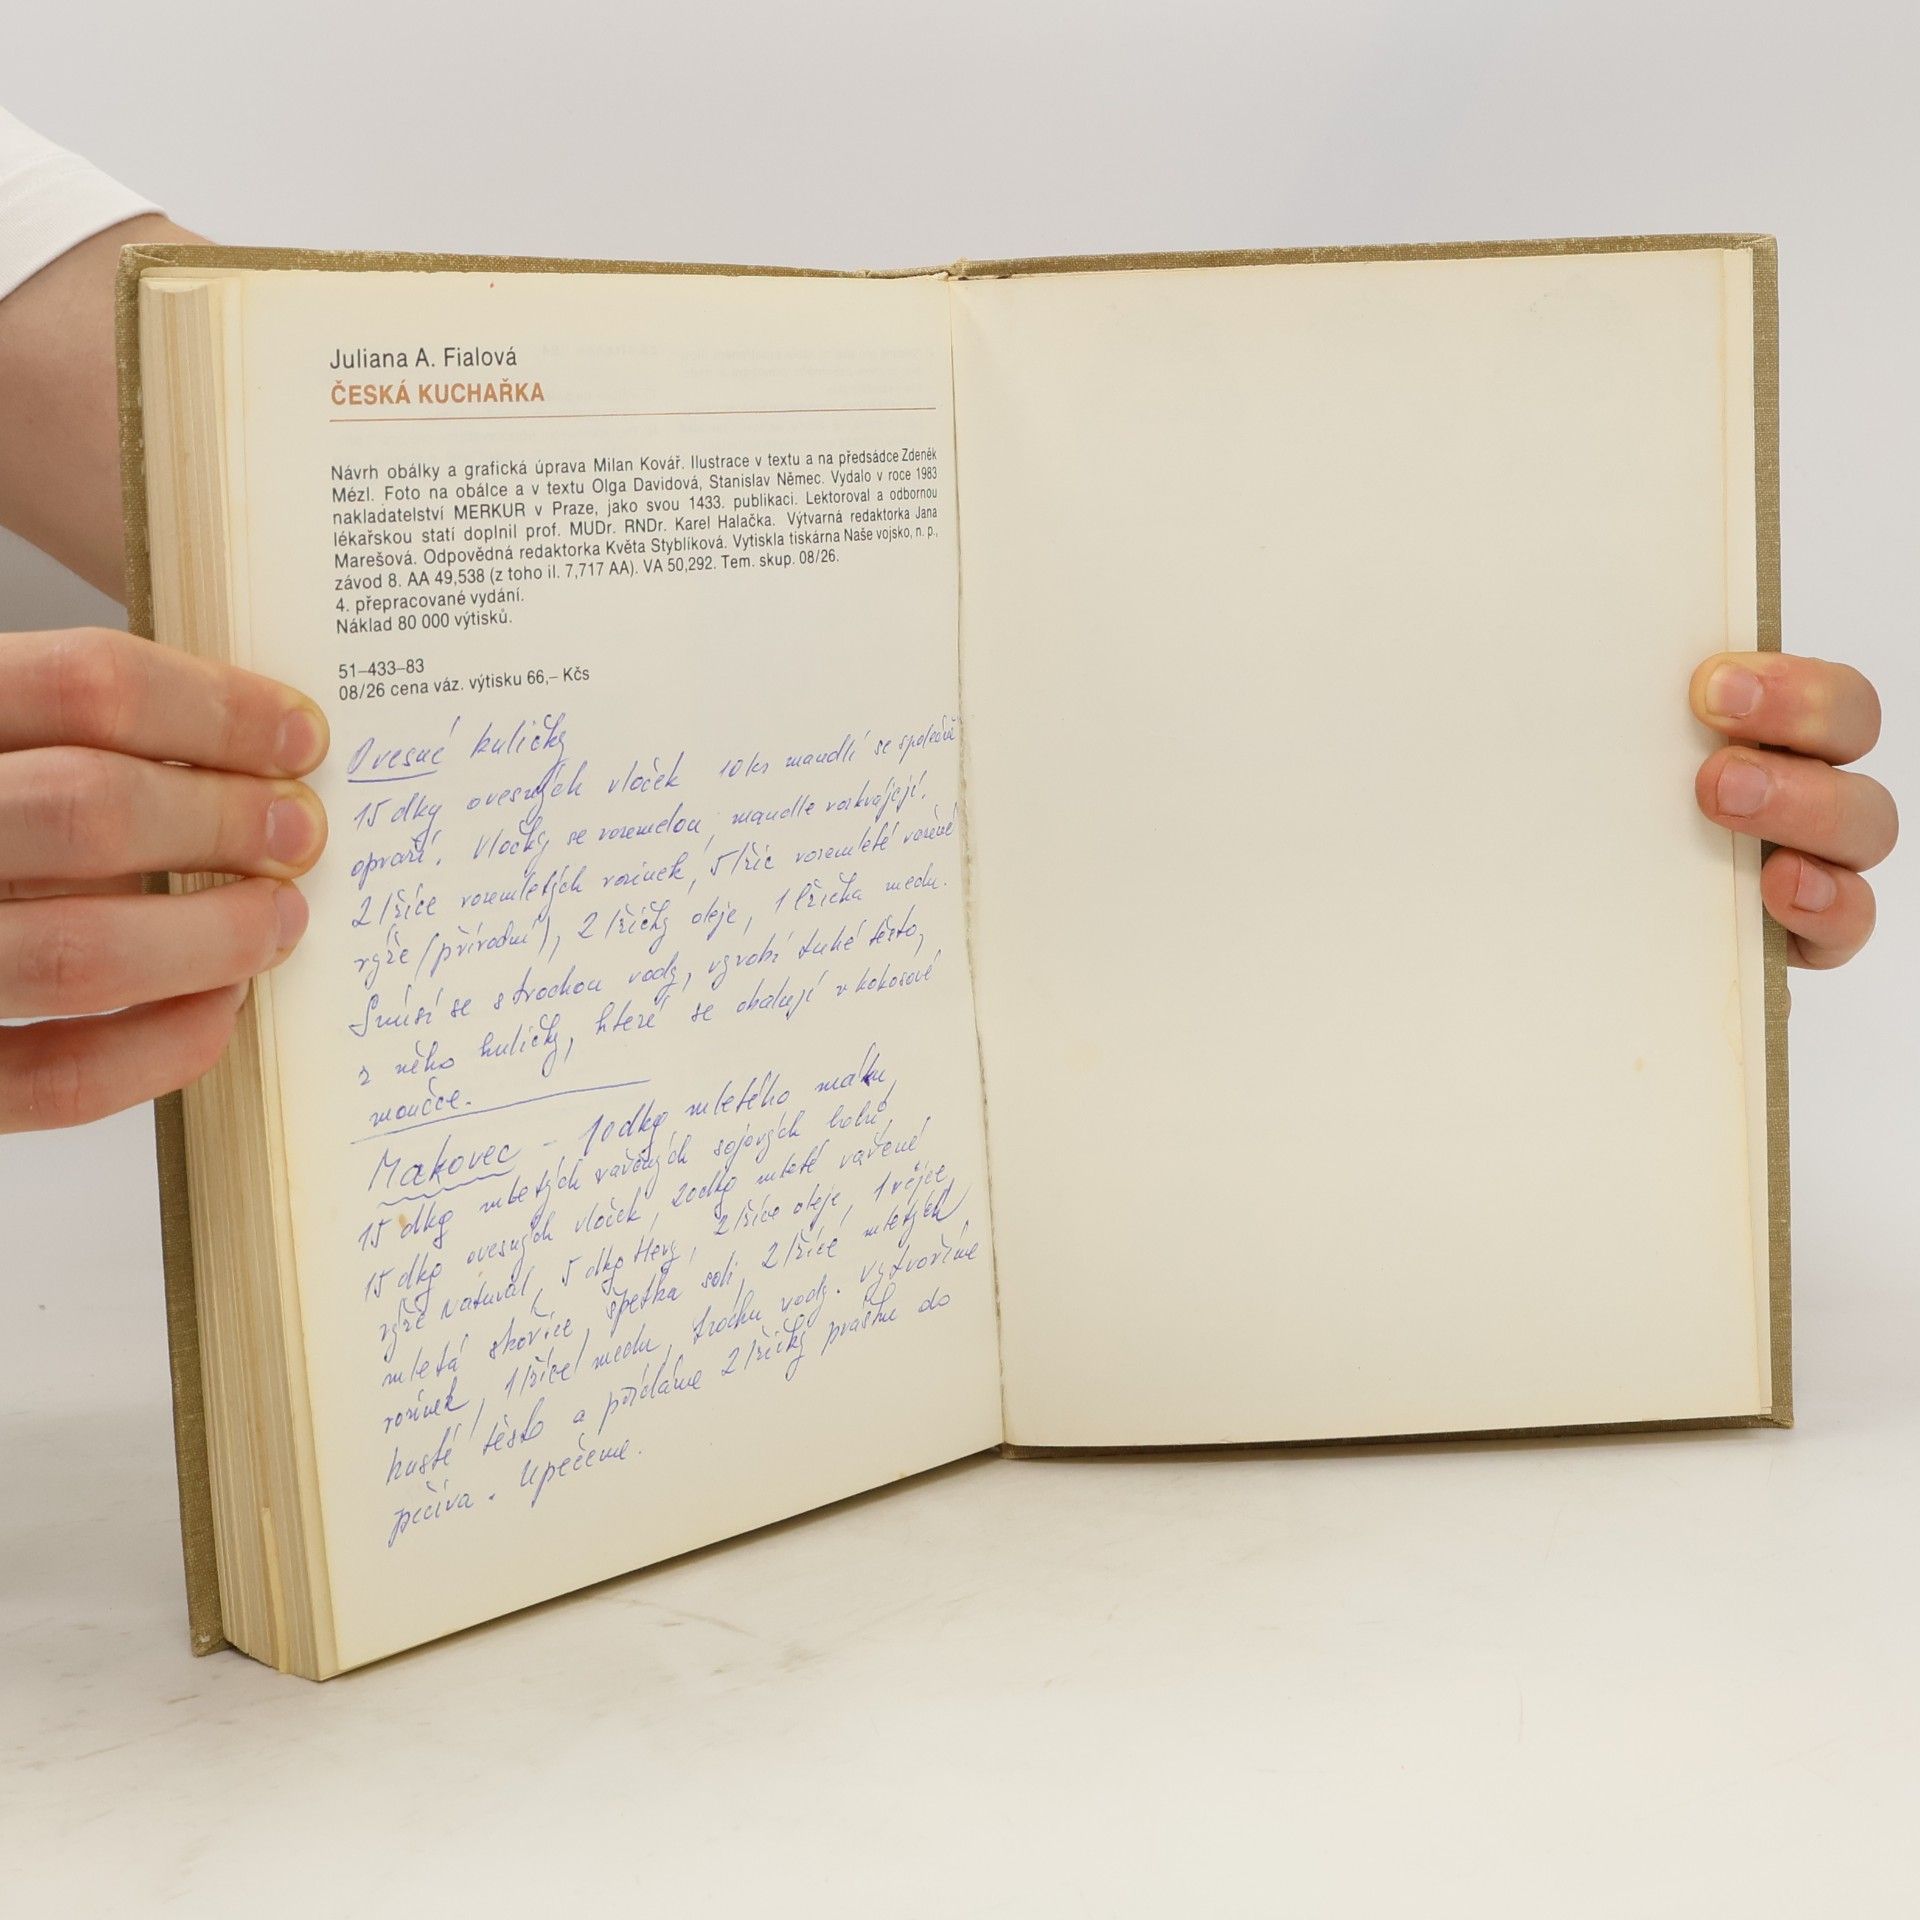 Juliana A. Fialová
ČESKÁ KUCHAŘKA
Návrh obálky a grafická úprava Milan Kovář. Ilustrace v textu a na předsádce Zdeněk
Mézl. Foto na obálce a v textu Olga Davidová, Stanislav Němec. Vydalo v roce 1983
nakladatelství MERKUR v Praze, jako svou 1433. publikaci. Lektoroval a odbornou
lékařskou statí doplnil prof. MUDr. RNDr. Karel Halačka. Výtvarná redaktorka Jana
Marešová. Odpovědná redaktorka Květa Styblíková. Vytiskla tiskárna Naše vojsko, n. p.,
závod 8. AA 49,538 (z toho il. 7,717 AA). VA 50,292. Tem. skup. 08/26.
4. přepracované vydání.
Náklad 80 000 výtisků.
51–433–83
08/26 cena váz. výtisku 66,– Kčs
Ovesné kuličky
15 dkg ovesných vloček 10 ks mandlí se společně
opraží. Vločky se rozemelou, mandle rozkrájejí.
2 lžíce rozemletých rozinek, 5 lžic rozemleté vařené
rýže (přírodní), 2 lžičky oleje, 1 lžička medu.
Smísí se s trochou vody, vyrobí tuhé těsto,
z něho kuličky, které se obalují v kokosové
moučce.
Makovec – 10 dkg mletého máku,
15 dkg mletých vařených sojových bobů,
15 dkg ovesných vloček, 20 dkg mleté vařené
rýže natural, 5 dkg Hery, 2 lžíce oleje, 1 vejce,
mletá skořice, špetka soli, 2 lžíce mletých
rozinek, 1 lžíce medu, trochu vody. Vytvoříme
husté těsto a přidáme 2 lžičky prášku do
pečiva. Upečeme.